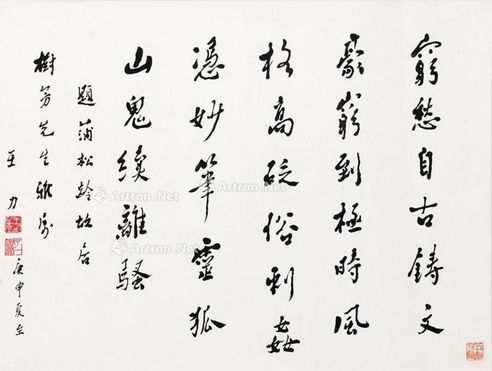 窮愁自古鑄文
豪窮到極時風
格高砭俗刺姦
憑妙筆靈狐
山鬼續離騷
題蒲松齡故居
樹芳先生雅屬
王力
庚申夏至
Artron.Net
Artron.Net